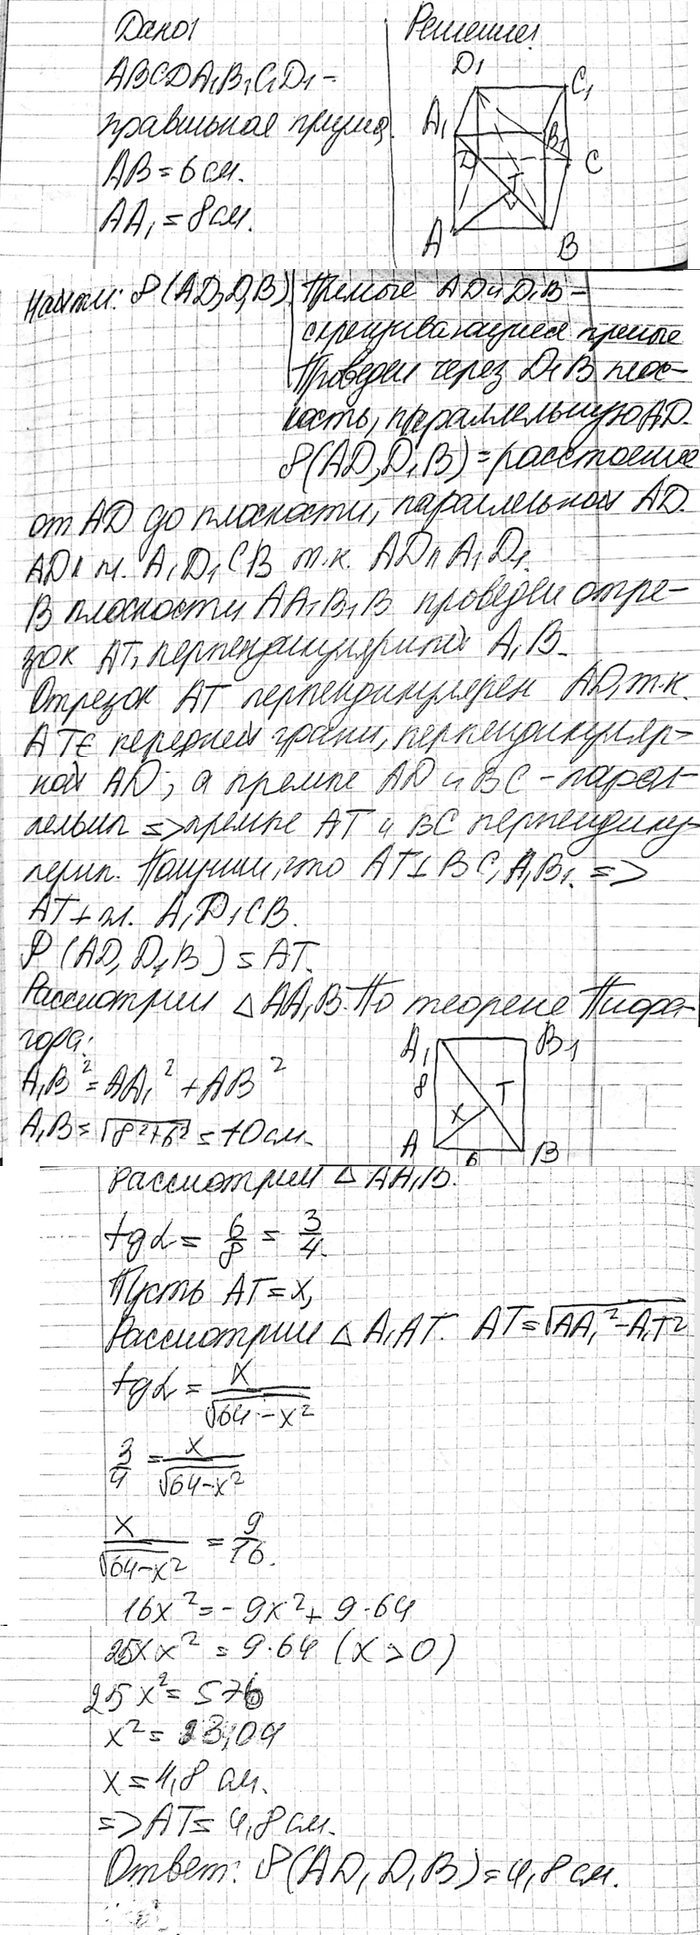 Дано:
ABCDA₁B₁C₁D₁ –
правильная призма
AB = 6 см.
AA₁ = 8 см.
Решение:
D₁
C₁
A₁
B₁
D
C
T
A
B
Найти: ρ(AD, D₁B)
Прямые AD и D₁B –
скрещивающиеся прямые
Проведем через D₁B плос-
кость, параллельную AD.
ρ(AD, D₁B) = расстояние
от AD до плоскости, параллельной AD.
AD ∥ пл. A₁D₁CB т.к. AD ∥ A₁D₁.
В плоскости AA₁B₁B проведем отре-
зок AT, перпендикулярный A₁B.
Отрезок AT перпендикулярен AD, т.к.
AT ∈ передней грани, перпендикуляр-
ной AD; а прямые AD и BC – парал-
лельны => прямые AT и BC перпендику-
лярны. Получим, что AT ⊥ BC, A₁B₁. =>
AT ⊥ пл. A₁D₁CB.
ρ(AD, D₁B) = AT.
Рассмотрим △AA₁B. По теореме Пифа-
гора:
A₁B² = AA₁² + AB²
A₁B = √8²+6² = 10 см.
A₁
B₁
8
T
x
A
6
B
Рассмотрим △AA₁B.
tgα = 6/8 = 3/4.
Пусть AT = x,
Рассмотрим △A₁AT. AT = √AA₁² – A₁T²
tgα = x/√64 – x²
3/4 = x/√64–x²
x/√64–x² = 9/16.
16x² = –9x² + 9·64
x² = 9·64 (x > 0)
25x² = 576
x² = 23,04
x = 4,8 см.
=> AT = 4,8 см.
Ответ: ρ(AD, D₁B) = 4,8 см.